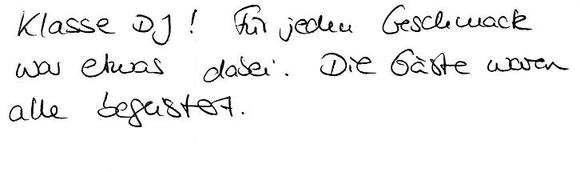 Klasse DJ! Für jeden Geschmack
war etwas dabei. Die Gäste waren
alle begeistert.